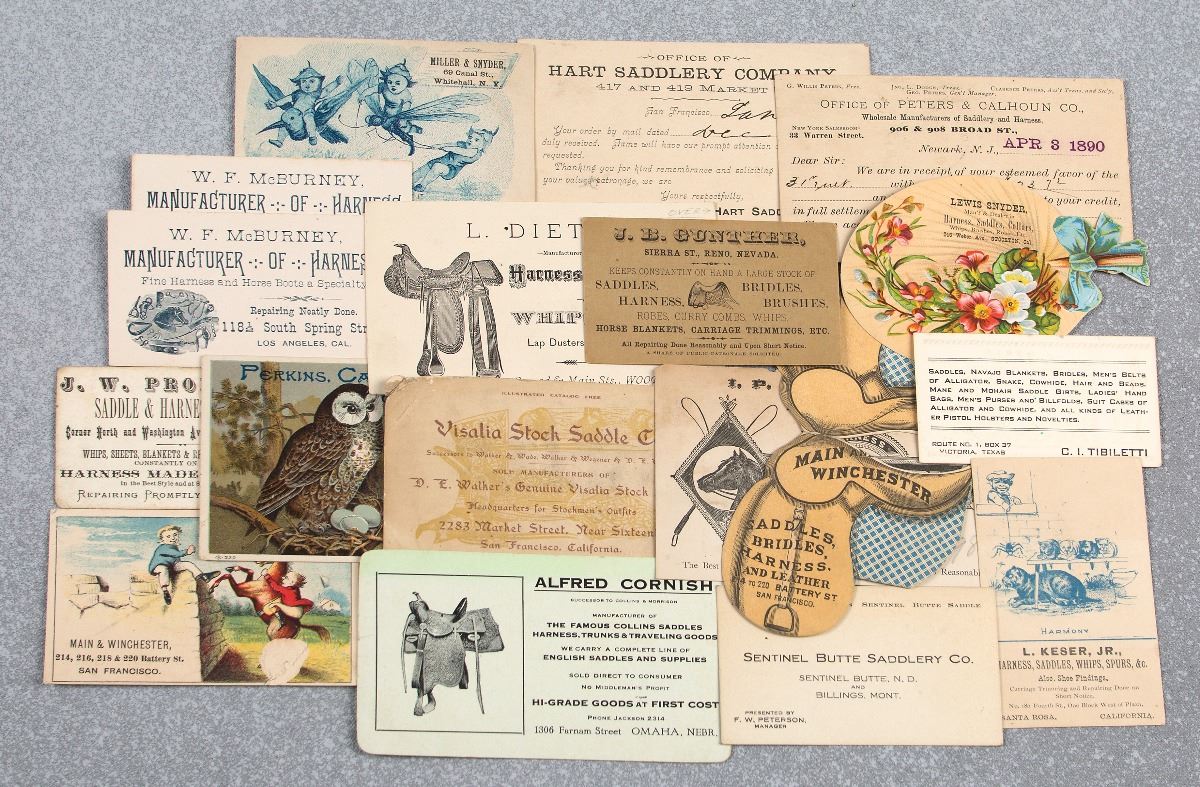 MILLER & SNYDER,
69 Canal St.,
Whitehall, N. Y.
OFFICE OF
HART SADDLERY COMPANY
417 AND 419 MARKET
San Francisco, Jan
Your order by mail dated Dec
duly received. Same will have our prompt attention
requested.
Thanking you for kind remembrance and soliciting
your valued patronage, we are
Yours respectfully,
HART SADD
G. WILLIS PETERS, Pres.
JNO. L. DODGE, Treas.
CLARENCE PETERS, Ass't Treas. and Sec'y.
GEO. PETERS, Gen'l Manager.
OFFICE OF PETERS & CALHOUN CO.,
Wholesale Manufacturers of Saddlery and Harness,
NEW YORK SALESROOM:
33 Warren Street.
906 & 908 BROAD ST.,
Newark, N. J., APR 3 1890
Dear Sir:
We are in receipt of your esteemed favor of the
31st inst. with
to your credit,
in full settlem
W. F. MCBURNEY,
MANUFACTURER -:- OF -:- HARNESS
W. F. MCBURNEY,
MANUFACTURER -:- OF -:- HARNES
Fine Harness and Horse Boots a Specialty
Repairing Neatly Done.
118½ South Spring Str
LOS ANGELES, CAL.
OVER?
L. DIET
Manufacturer
Harness
WHIP
Lap Dusters
& Main Sts., WOO
J. B. GUNTHER,
SIERRA ST., RENO, NEVADA.
KEEPS CONSTANTLY ON HAND A LARGE STOCK OF
SADDLES, BRIDLES,
HARNESS, BRUSHES,
ROBES, CURRY COMBS, WHIPS,
HORSE BLANKETS, CARRIAGE TRIMMINGS, ETC.
All Repairing Done Reasonably and Upon Short Notice.
A SHARE OF PUBLIC PATRONAGE SOLICITED.
LEWIS SNYDER,
Man'f & Dealer in
Harness, Saddles, Collars,
Whips, Brushes, Robes, Etc.
STOCKTON, CAL.
SADDLES, NAVAJO BLANKETS, BRIDLES, MEN'S BELTS
OF ALLIGATOR, SNAKE, COWHIDE, HAIR AND BEADS.
MANE AND MOHAIR SADDLE GIRTS, LADIES' HAND
BAGS, MEN'S PURSES AND BILLFOLDS, SUIT CASES OF
ALLIGATOR AND COWHIDE, AND ALL KINDS OF LEATH-
ER PISTOL HOLSTERS AND NOVELTIES.
ROUTE NO. 1, BOX 37
VICTORIA, TEXAS
C. I. TIBILETTI
J. W. PRO
SADDLE & HARNE
Corner North and Washington Av
WHIPS, SHEETS, BLANKETS & R
CONSTANTLY ON
HARNESS MADE
in the Best Style and at S
REPAIRING PROMPTLY
PERKINS, CA
ILLUSTRATED CATALOG FREE
Visalia Stock Saddle C
Successors to Walker & Wade, Walker & Wegener & D. E. W
SOLE MANUFACTURERS OF
D. E. Walker's Genuine Visalia Stock
Headquarters for Stockmen's Outfits
2283 Market Street, Near Sixteen
San Francisco, California.
I. P.
The Best
Reasonab
MAIN AND
WINCHESTER
SADDLES,
BRIDLES,
HARNESS,
AND LEATHER
4 TO 220 BATTERY ST
SAN FRANCISCO.
MAIN & WINCHESTER,
214, 216, 218 & 220 Battery St.
SAN FRANCISCO.
ALFRED CORNISH
SUCCESSOR TO COLLINS & MORRISON
MANUFACTURER OF
THE FAMOUS COLLINS SADDLES
HARNESS, TRUNKS & TRAVELING GOODS
WE CARRY A COMPLETE LINE OF
ENGLISH SADDLES AND SUPPLIES
SOLD DIRECT TO CONSUMER
NO MIDDLEMAN'S PROFIT
HI-GRADE GOODS AT FIRST COST
PHONE JACKSON 2314
1306 Farnam Street OMAHA, NEBR.
SENTINEL BUTTE SADDLE
SENTINEL BUTTE SADDLERY CO.
SENTINEL BUTTE, N. D.
AND
BILLINGS, MONT.
PRESENTED BY
F. W. PETERSON,
MANAGER
HARMONY
L. KESER, JR.,
HARNESS, SADDLES, WHIPS, SPURS, &c.
Also, Shoe Findings.
Carriage Trimming and Repairing Done on
Short Notice.
No. 181 Fourth St., One Block West of Plaza,
SANTA ROSA, CALIFORNIA.